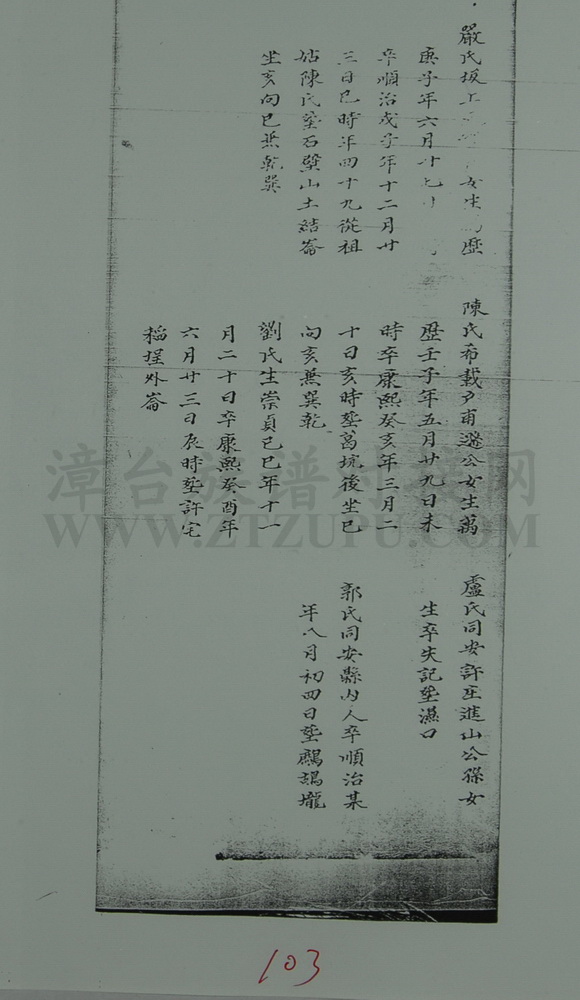 嚴氏坂上女生萬歷
庚子年六月廿七
卒順治戊子年十二月廿
三日巳時年四十九從祖
姑陳氏塟石壁山土結崙
坐亥向巳兼乾巽
陳氏希載尹甫公女生萬
歷壬子年五月廿九日未
時卒康熙癸亥年三月二
十日亥時塟萬坑後坐巳
向亥兼巽乾
劉氏生崇貞己巳年十一
月二十日卒康熙癸酉年
六月廿三日辰時塟許宅
稻埕外崙
盧氏同安許庄進山公孫女
生卒失記塟濕口
郭氏同安縣內人卒順治某
年八月初四日塟壠
漳台族谱对接网
WWW.ZTZUPU.COM
103